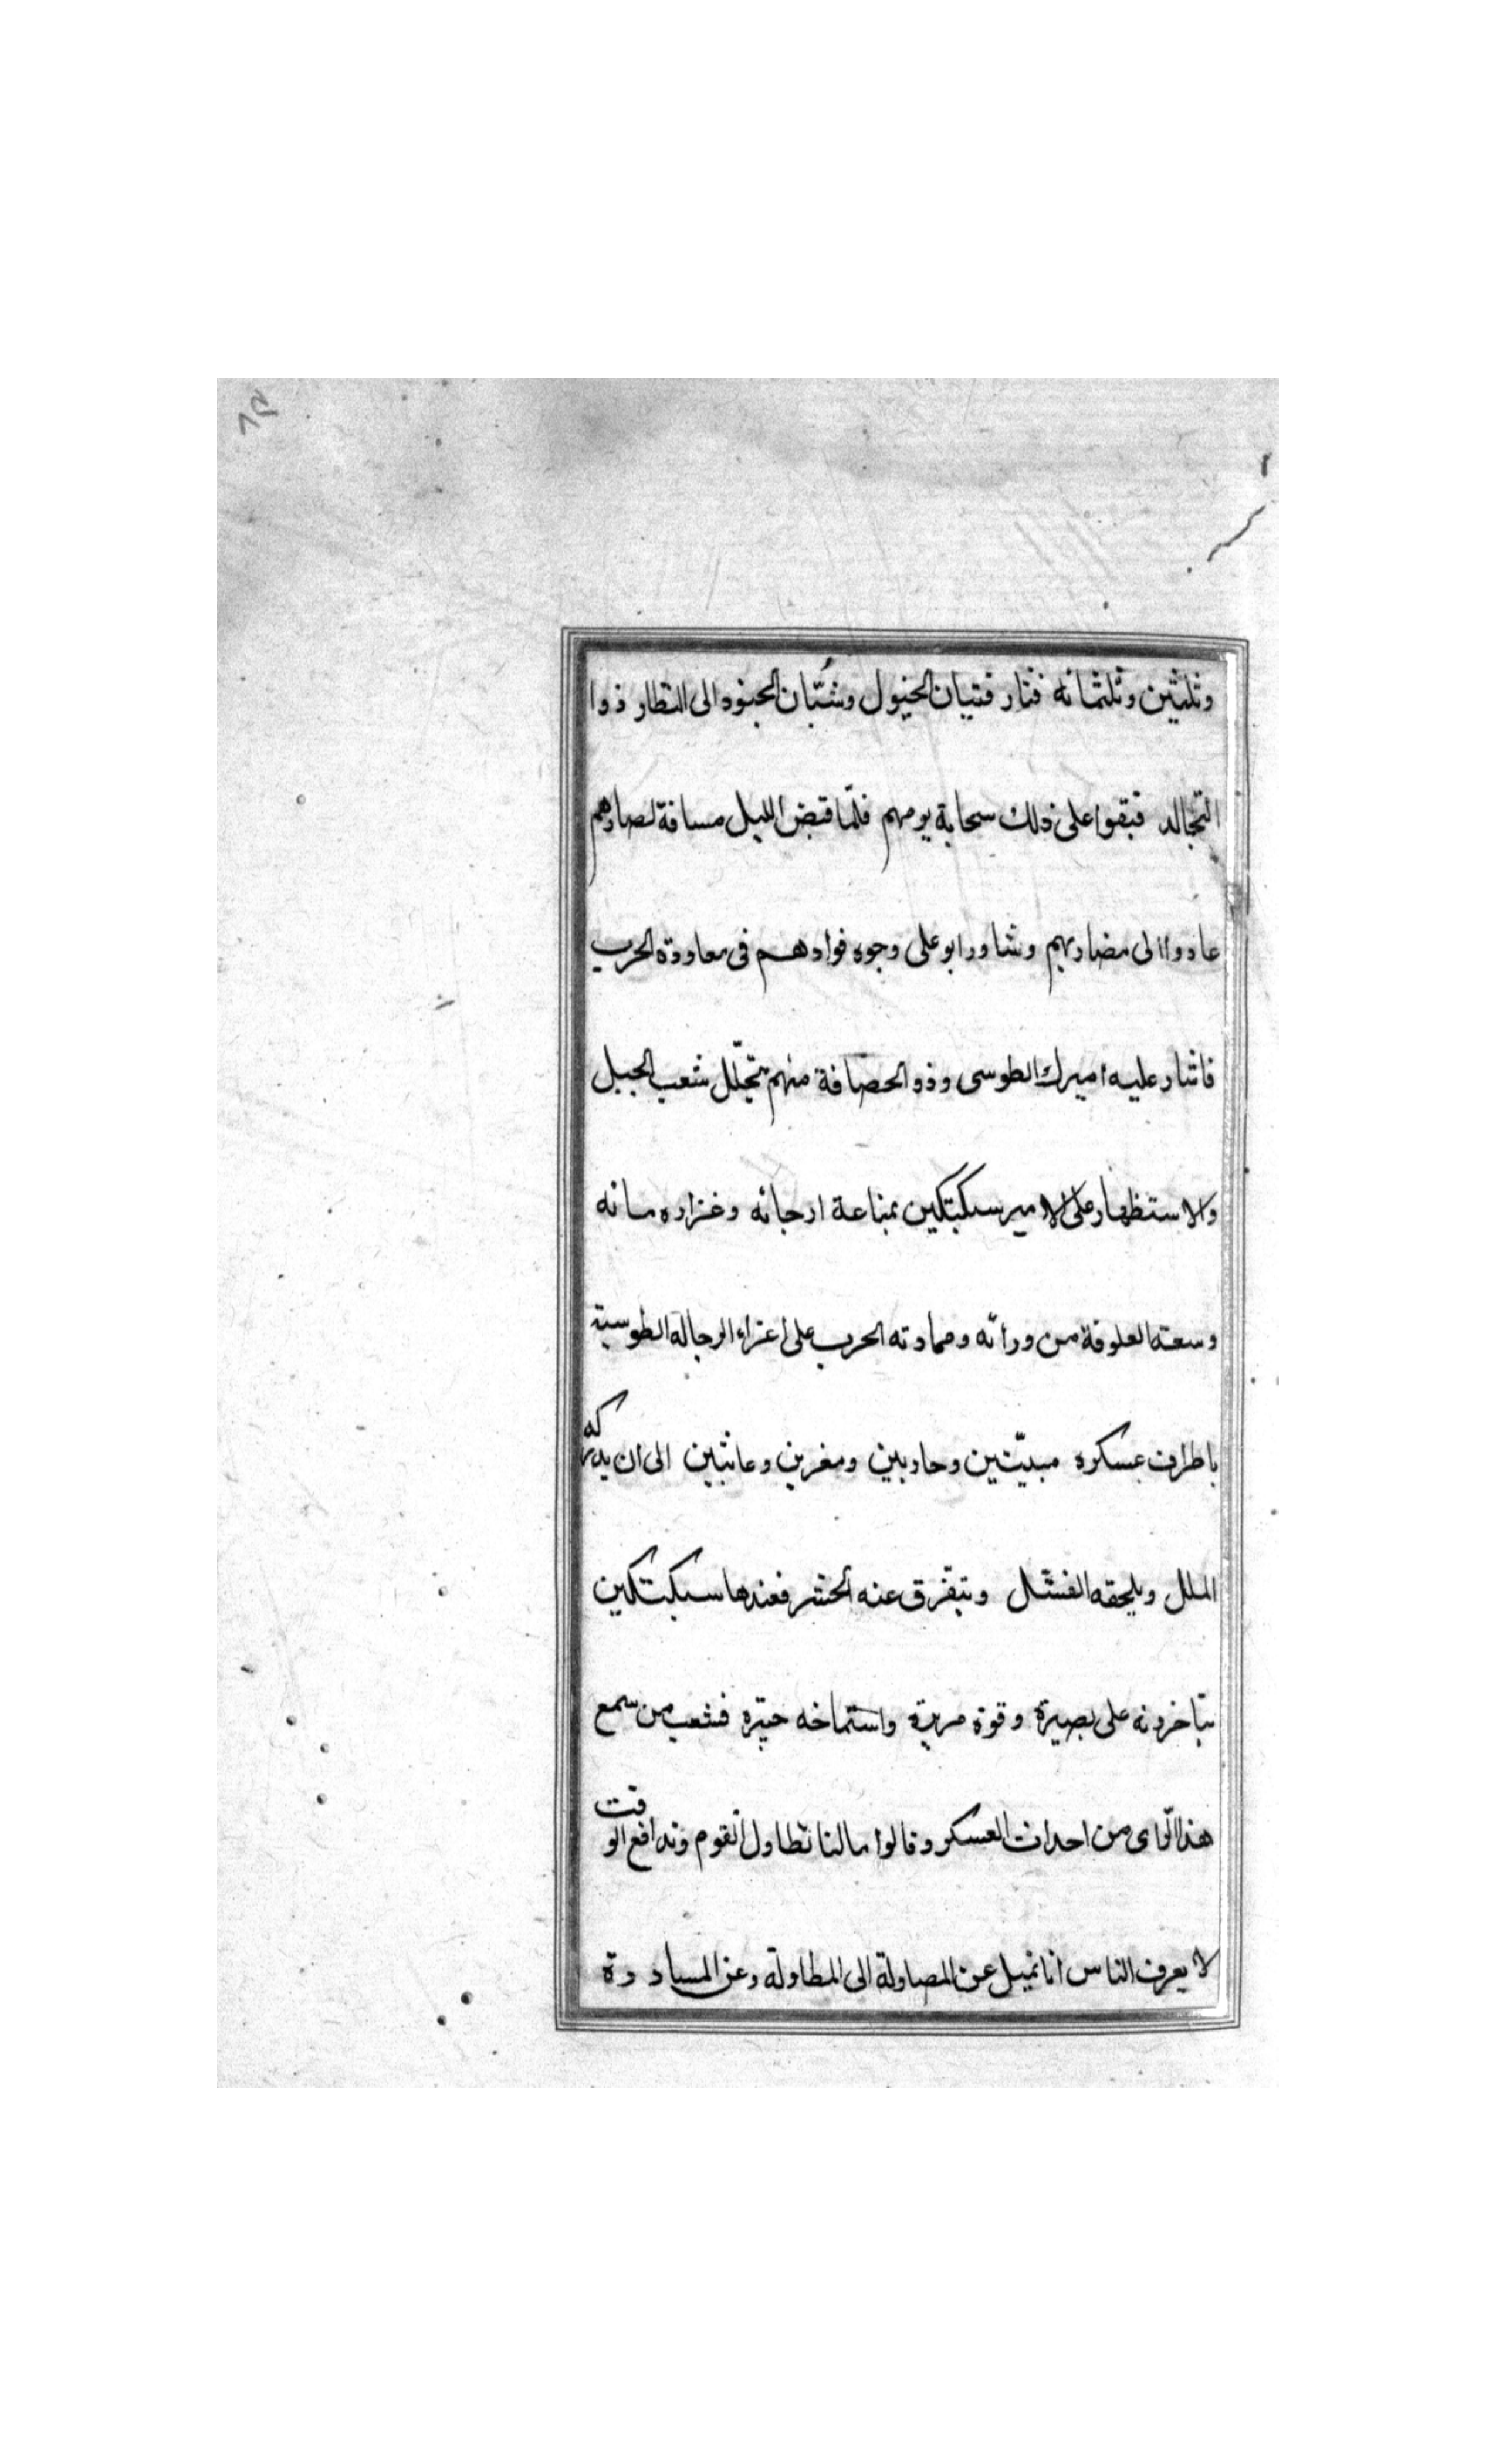 وثلثین وثلثمائه فثار فتیان الخیول وشُبّان الجنود الی النظار ذوا
التجالد فبقوا علی ذلك سحابة یومهم فلمّا قبض اللیل مسافة لصارهم
عادوا الی مضاربهم وشاور ابو علی وجوه قوادهم فی معاودة الحرب
فاشار علیه امیرك الطوسی وذو الحصافة منهم بتجلّل شعب الجبل
والاستظهار علی الامیر سبکتکین بمناعة ارجائه وغزاره مائه
وسعة العلوفة من ورائه ومماددته الحرب علی اغزاء الرجالة الطوسیة
باطراف عسکره مبیّتین وحاربین ومغرین وعابثین الی ان یدرکه
الملل ویلحقه الفشل ویتفرق عنه الحشر فعندها سبکتکین
علی بصیرة وقوة مریرة فشعب من سمع
هذا الرّای من احداث العسکر وقالوا مالنا نطاول القوم وندافع الوقت
لا یعرف الناس انا نمیل عن المصاولة الی المطاولة وعن المبادرة